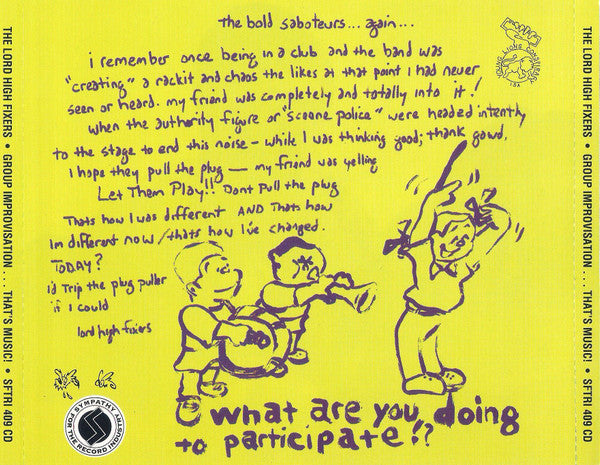 the bold saboteurs... again...
i remember once being in a club and the band was
"creating" a rackit and chaos the likes at that point I had never
seen or heard. my friend was completely and totally into it!
when the authority figure or "sceene police" were headed intently
to the stage to end this noise - while I was thinking good; thank gowd.
I hope they pull the plug — my friend was yelling
Let Them Play!! Dont Pull the plug
Thats how I was different AND Thats how
Im different now / thats how I've changed.
TODAY?
i'd Trip the plug puller
if I could
lord high fixers
what are you doing
to participate!?
THE LORD HIGH FIXERS • GROUP IMPROVISATION . . . THAT'S MUSIC! • SFTRI 409 CD
THE LORD HIGH FIXERS • GROUP IMPROVISATION . . . THAT'S MUSIC! • SFTRI 409 CD
SYMPATHY
FOR THE RECORD INDUSTRY
YOUNG LIONS CONSPIRACY